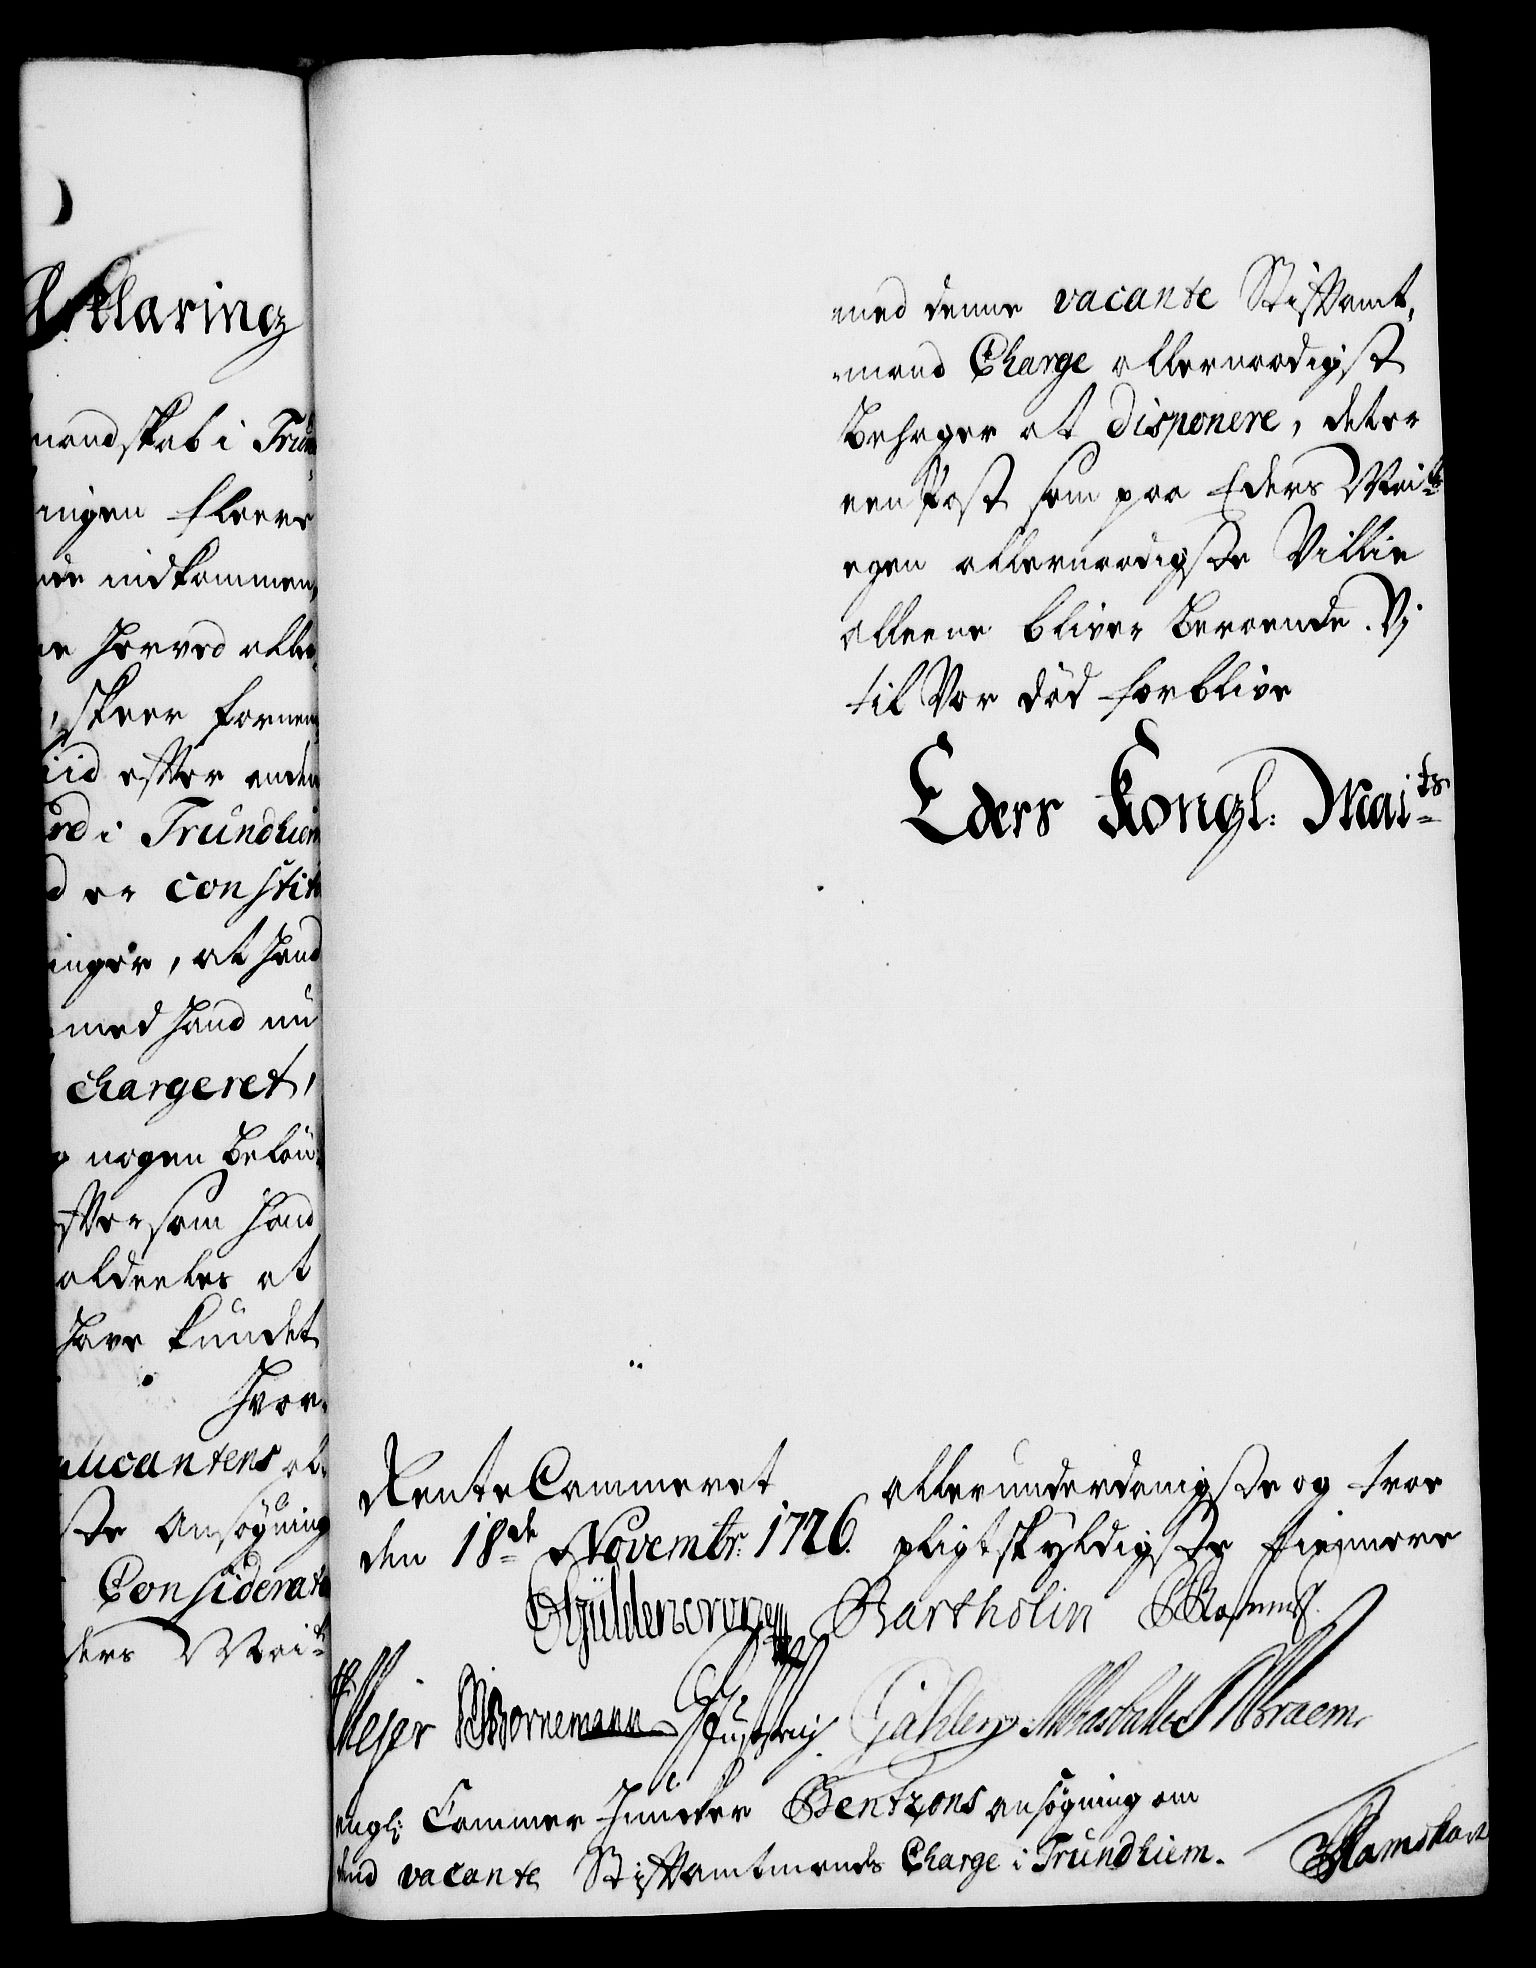 Erklæring
mandskab i Trund
ingen fleere
indkommen,
er herved aller,
, skeer fornem
tiid efter anden
i Trundhiem
d er constit
inger, at hand
med hand nu
chargeret,
nogen belön
eftersom hand
aldeeles at
have kundet
hvor-
plicantens al
ste Ansøgning
Considerat
Eders Maits
med denne vacante Stiftamt,
mand Charge allernaadigst
behager at disponere, det er
een Post som paa Eders Maits
egen allernaadigste Villie
alleene bliver beroende. Vj
til Vor död forblive
Eders Kongl: Maits
Rente Cammeret
den 18de Novembr: 1726.
allerunderdanigste og troe
pligtskyldigste tienere
Güldencrone Bartholin
Mejer Bornemann Gähler Braem
engl: Cammer Juncker Bentzons ansögning om
vacante Stiftamtmands Charge i Trundhiem.
Ramshart